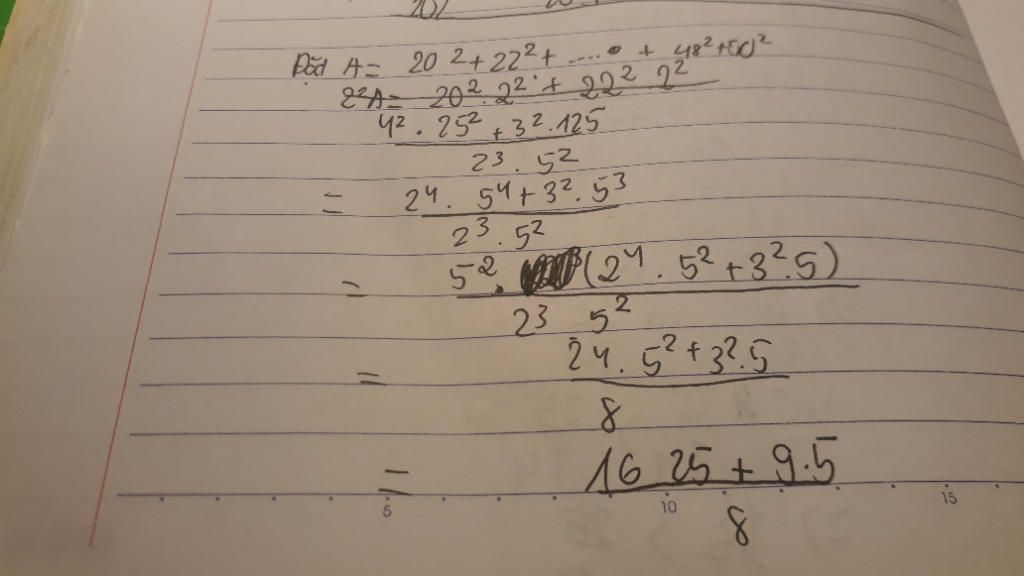 Đặt A = 20² + 22² + ..... + 48² + 50²
2²A = 20² . 2² + 22² . 2²
4² . 25² + 3² . 125
2³ . 5²
= 2⁴ . 5⁴ + 3² . 5³
2³ . 5²
= 5² . (2⁴ . 5² + 3² . 5)
2³ 5²
= 2⁴ . 5² + 3² . 5
8
= 16 25 + 9 . 5
8
5 10 15